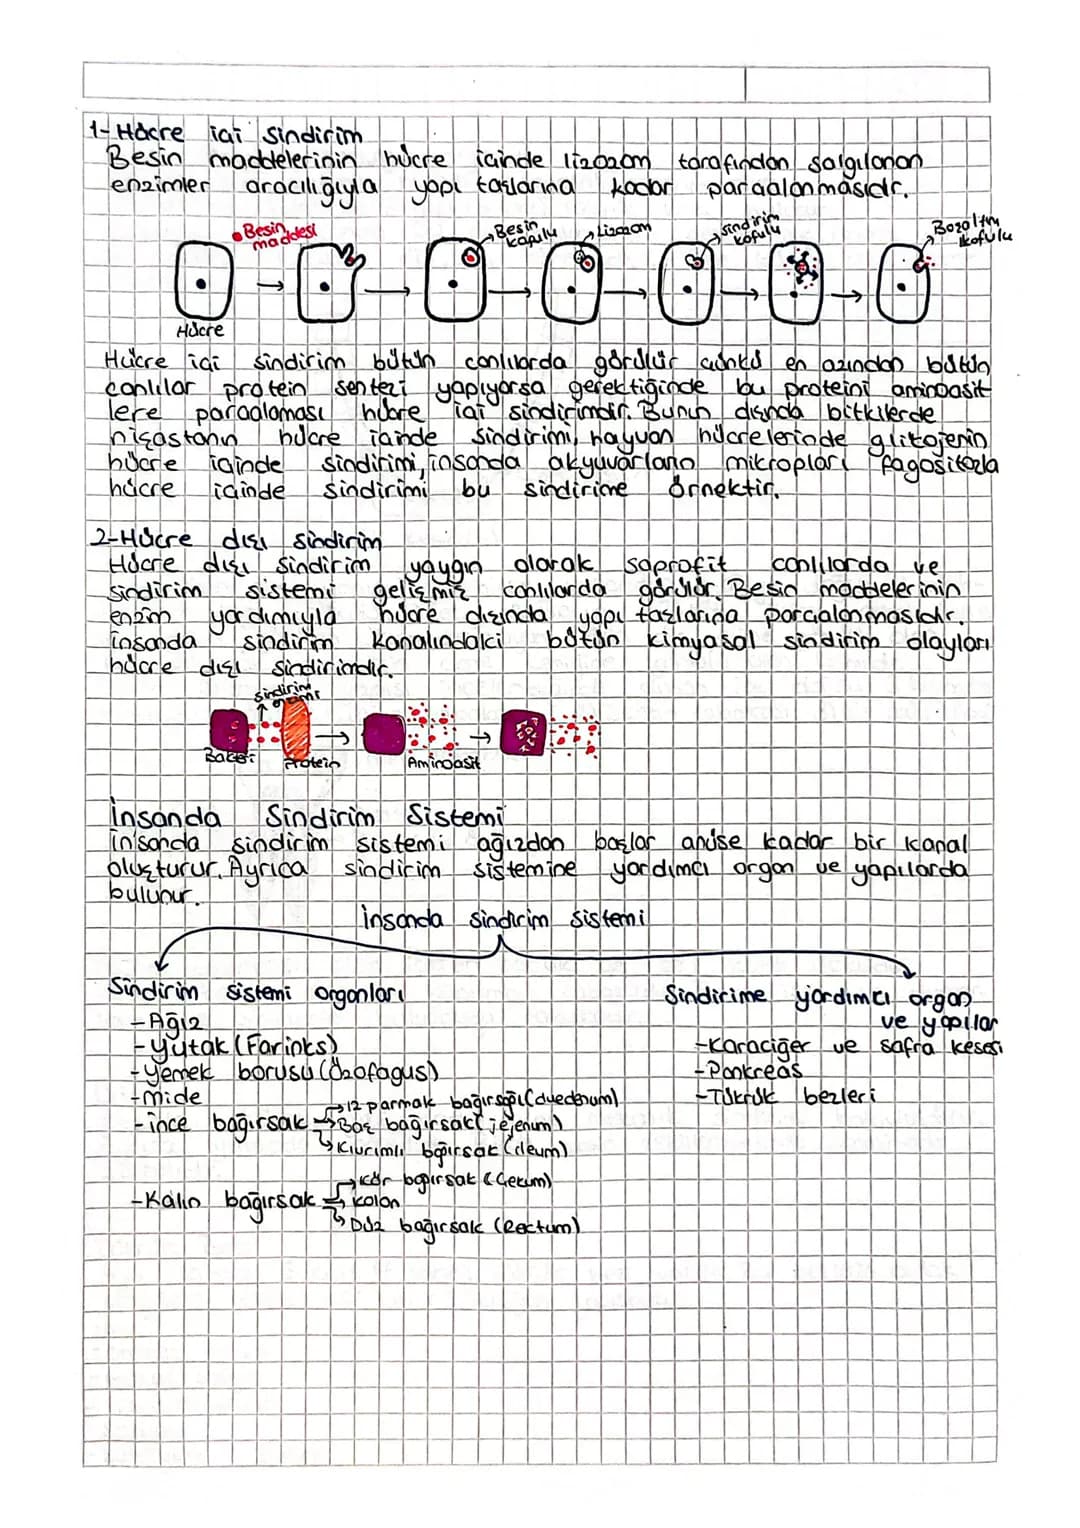 1- Hücre içi sindirim
Besin maddelerinin hücre içinde lizozom tarafından salgılanan
enzimler aracılığıyla yapı taşlarına kadar parçalanmasıdır.
Besin maddesi
Besin kofulu
Lizozom
sindirim kofulu
Boşaltım kofulu
Hücre
Hücre içi sindirim bütün canlılarda görülür çünkü en azından bütün
canlılar protein sentezi yapıyorsa gerektiğinde bu proteini aminoasit
lere parçalaması hücre içi sindirimdir. Bunun dışında bitkilerde
nişastanın hücre içinde sindirimi, hayvan hücrelerinde glikojenin
hücre içinde sindirimi, insanda akyuvarların mikropları fagositozla
hücre içinde sindirimi bu sindirime örnektir.
2-Hücre dışı sindirim
Hücre dışı sindirim yaygın olarak saprofit canlılarda ve
sindirim sistemi gelişmiş canlılarda görülür. Besin maddelerinin
enzim yardımıyla hücre dışında yapı taşlarına parçalanmasıdır.
insanda sindirim kanalındaki bütün kimyasal sindirim olayları
hücre dışı sindirimdir.
sindirim enzimi
Bakteri
Protein
Aminoasit
İnsanda Sindirim Sistemi
İnsanda sindirim sistemi ağızdan başlar anüse kadar bir kanal
oluşturur. Ayrıca sindirim sistemine yardımcı organ ve yapılarda
bulunur.
İnsanda sindirim sistemi
Sindirim sistemi organları
-Ağız
-Yutak (Farinks)
-Yemek borusu (Özofagus)
-mide
-ince bağırsak
12 parmak bağırsağı (duedenum)
Boş bağırsak (jejenum)
Kıvrımlı bağırsak (ileum)
-Kalın bağırsak
Kör bağırsak (Çekum)
Kolon
Düz bağırsak (Rectum)
Sindirime yardımcı organ
ve yapılar
-Karaciğer ve safra kesesi
-Pankreas
-Tükrük bezleri